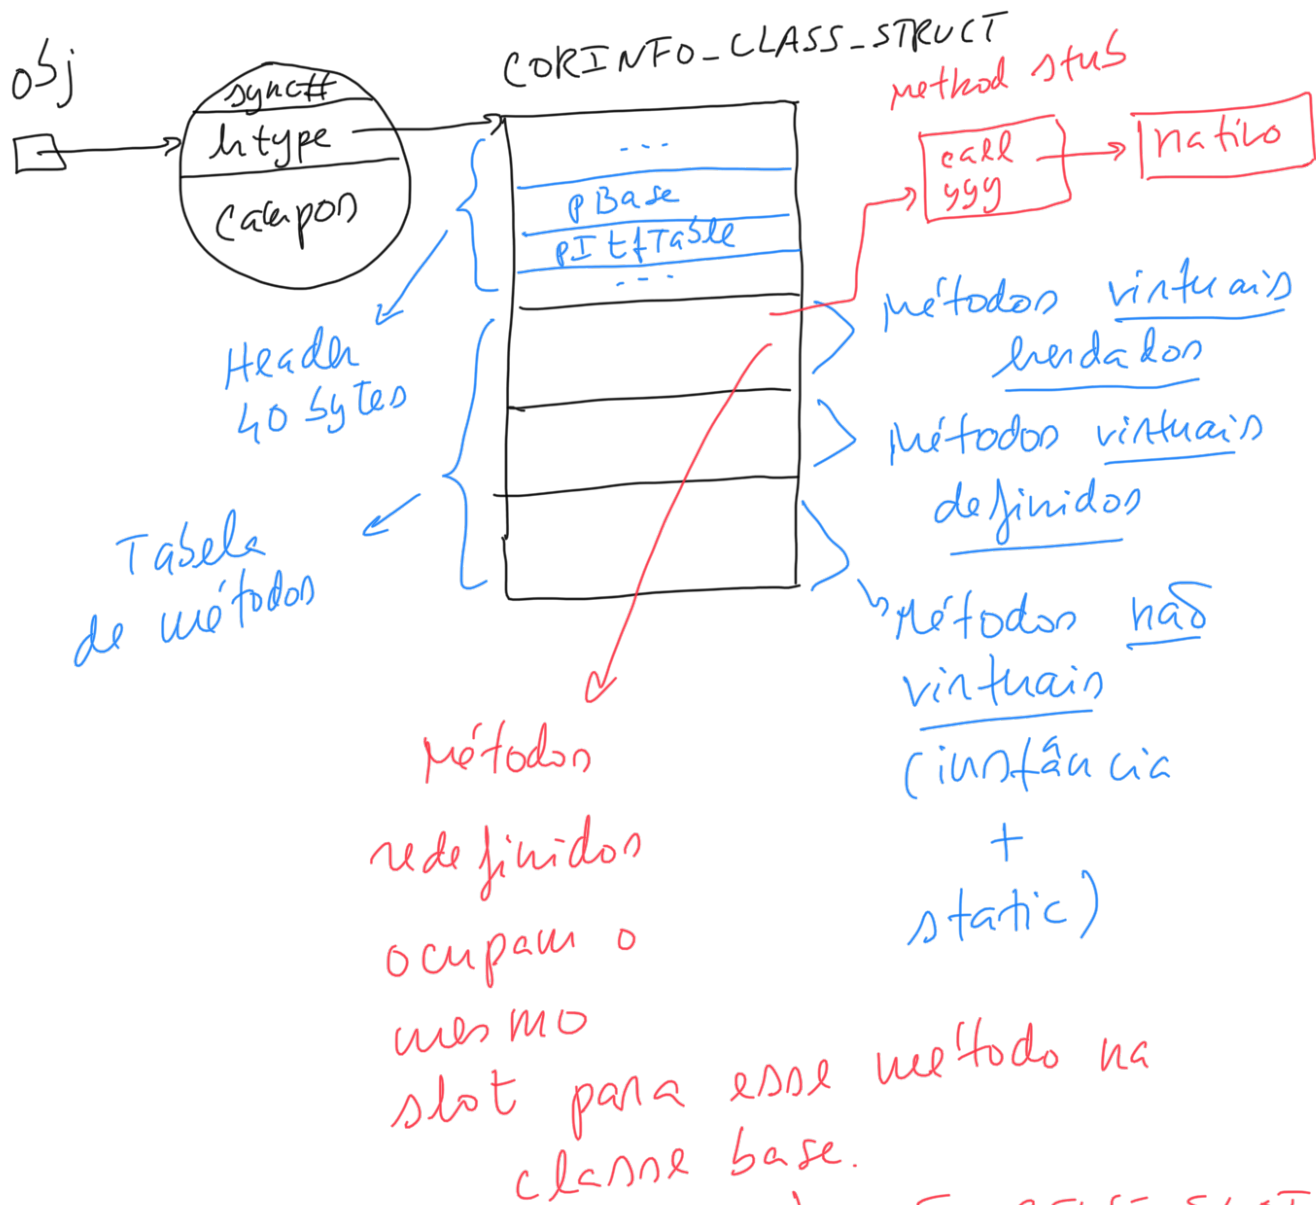 obj
sync#
htype
campos
CORINFO_CLASS_STRUCT
...
pBase
pItfTable
...
method stub
call
yyy
nativo
Header
40 bytes
Tabela
de métodos
Métodos virtuais
herdados
Métodos virtuais
definidos
Métodos não
virtuais
(instância
+
static)
Métodos
redefinidos
ocupam o
mesmo
slot para esse método na
classe base.